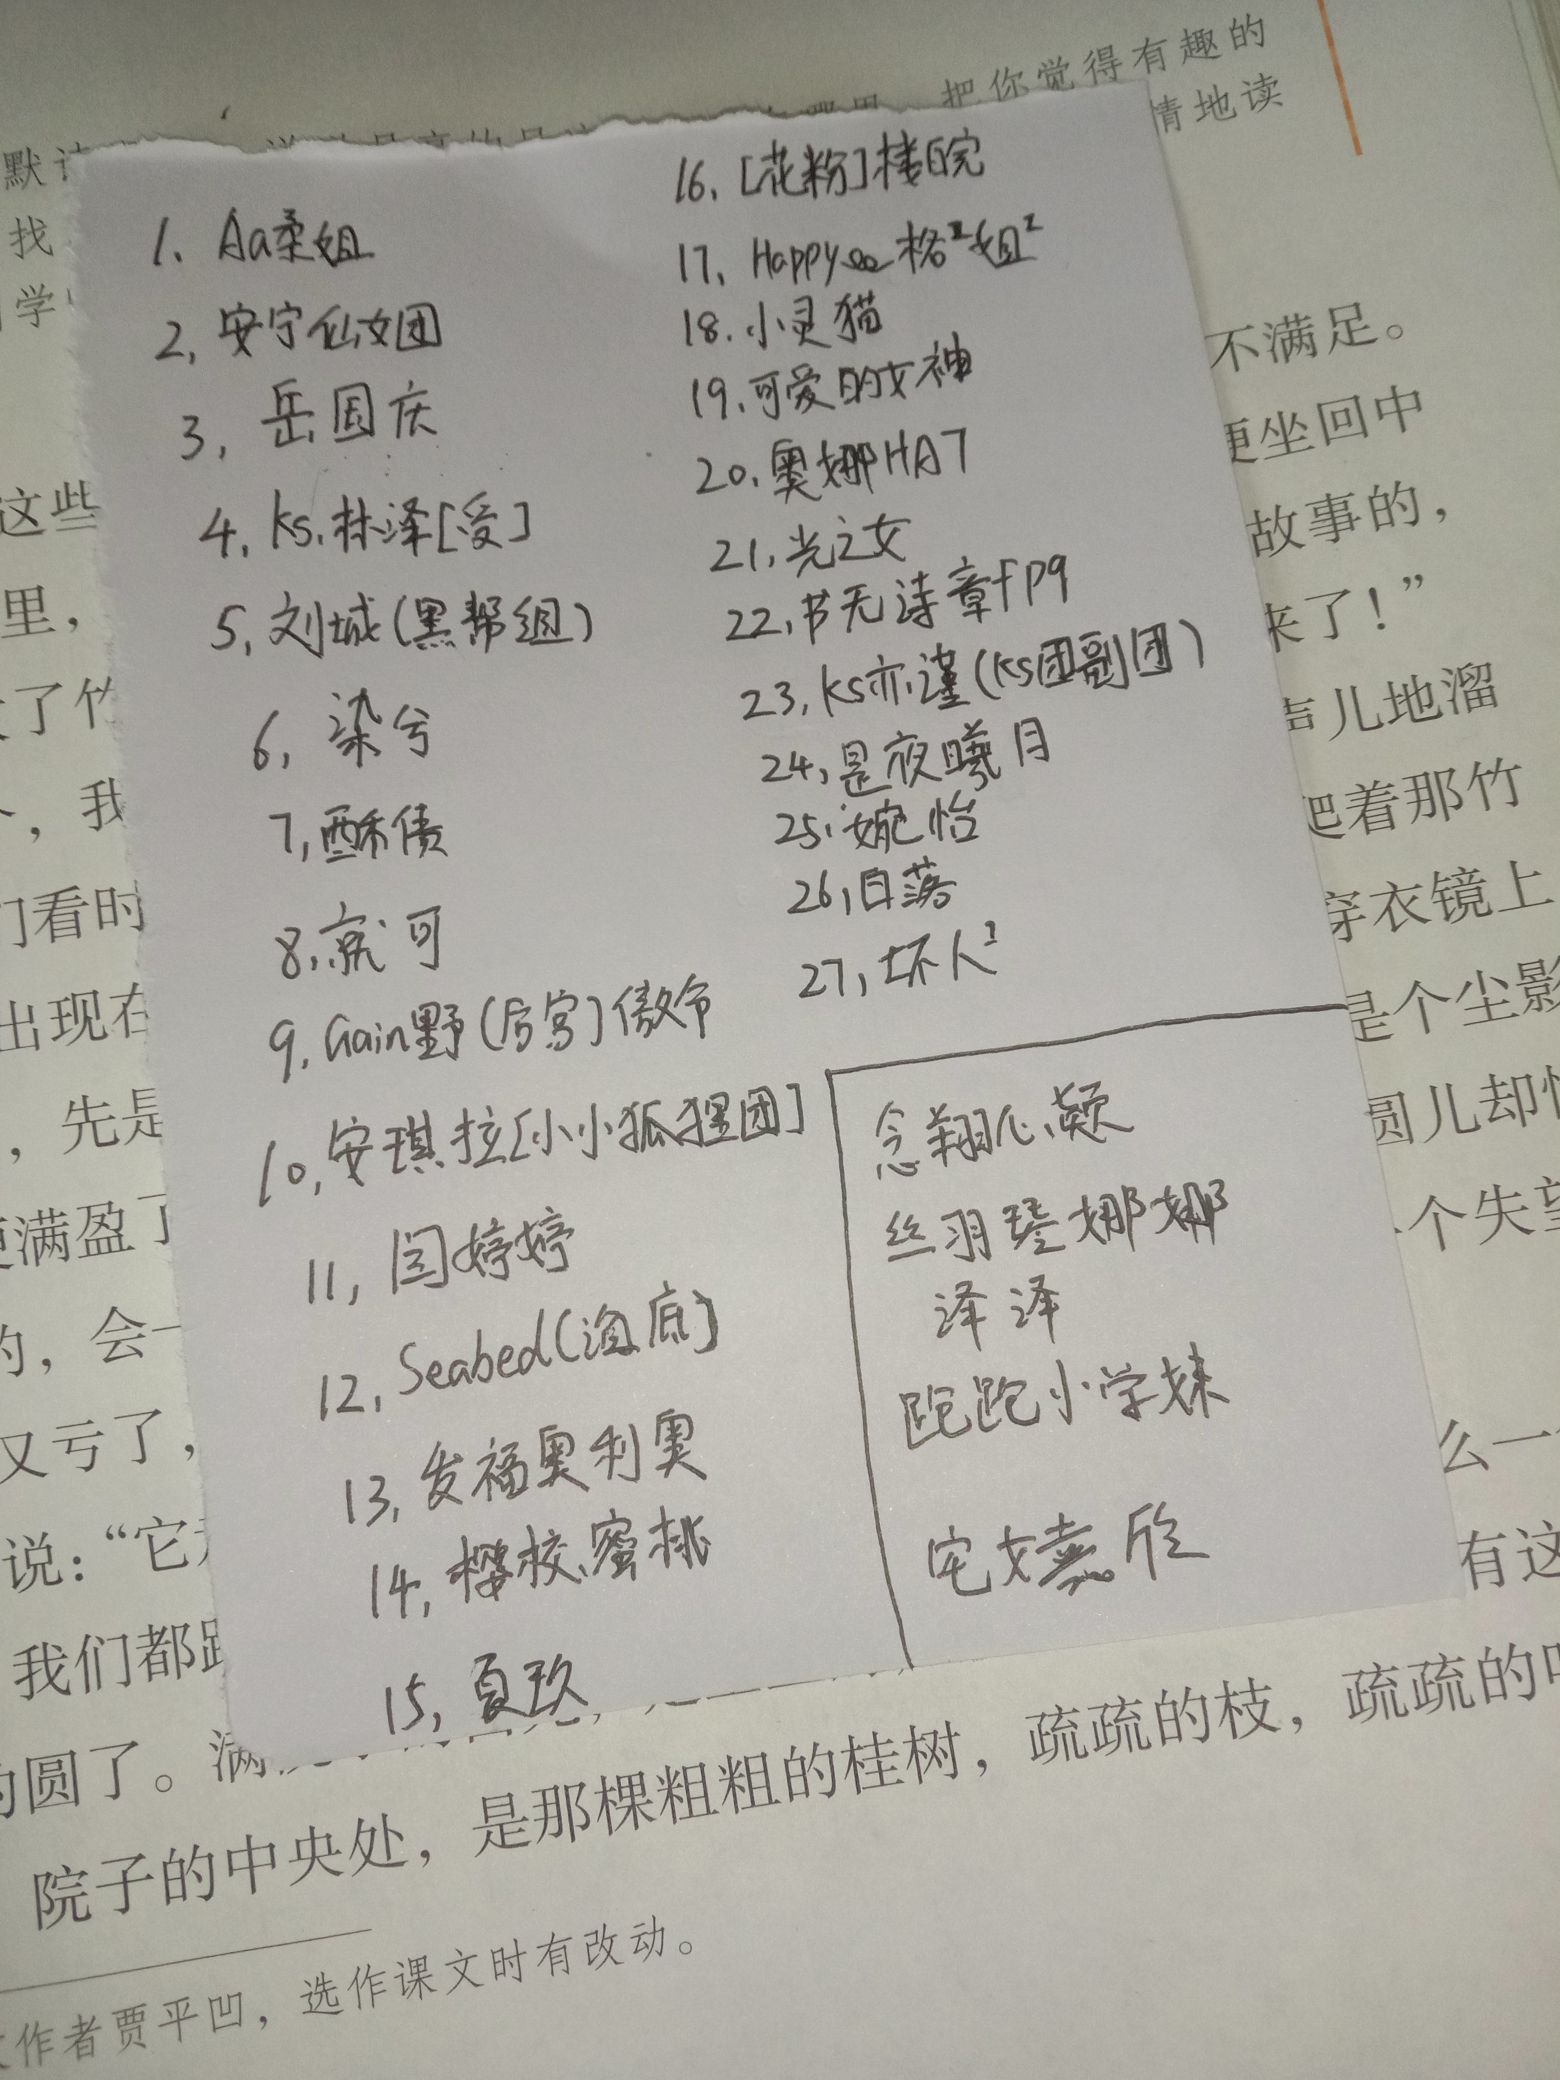 把你觉得有趣的
情地读
默读
找
学
1. Aa柔姐
2, 安宁仙女团
3, 岳国庆
4, ks.林泽[受]
5, 刘城(黑帮组)
6, 染兮
7, 酥债
8, 就可
9, Gain野(后宫)傲令
10, 安琪拉[小小狐狸团]
11, 闫婷婷
12, Seabed(海底]
13, 发福奥利奥
14, 樱校蜜桃
15, 夏玖
16, [花粉]楼皖
17, Happy 格²姐²
18. 小灵猫
19. 可爱的女神
20. 奥娜HA7
21, 光之女
22, 书无诗章fpq
23, ks亦谨(ks团副团)
24, 是夜曦月
25. 婉怡
26, 日落
27, 坏人²
念翔心颖
丝羽琴娜娜
泽泽
跑跑小学妹
宅女 欣
不满足。
便坐回中
这些
故事的，
里，
来了！”
了竹
声儿地溜
，我
把着那竹
们看时
穿衣镜上
出现在
是个尘影
，先是
圆儿却
便满盈了
个失望
的，会一
又亏了，
么一
说：“它
有这
我们都
的圆了。满
院子的中央处，是那棵粗粗的桂树，疏疏的枝，疏疏的叶
作者贾平凹，选作课文时有改动。